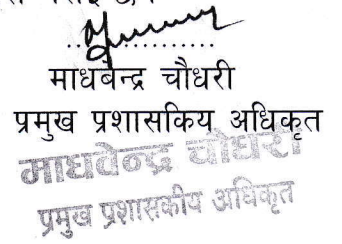 माधबेन्द्र चौधरी
प्रमुख प्रशासकिय अधिकृत
माधवेन्द्र चौधरी
प्रमुख प्रशासकीय अधिकृत